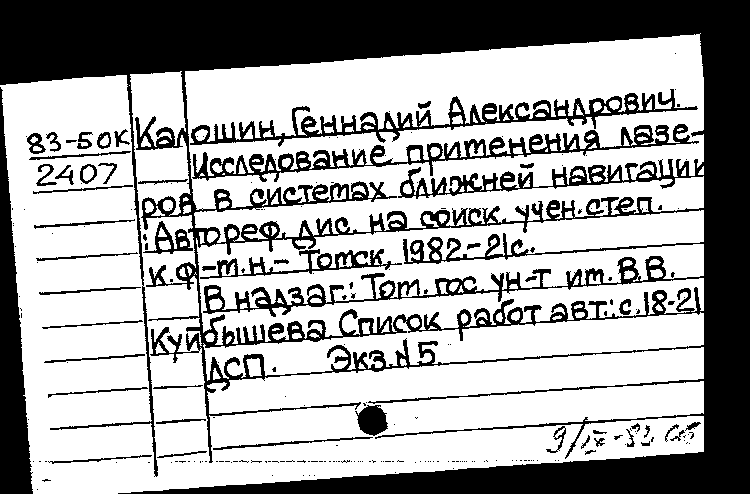 83-50К Калошин, Геннадий Александрович.
2407 Исследование применения лазе-
ров в системах ближней навигации
: Автореф. дис. на соиск. учен. степ.
к.ф-м.н. - Томск, 1982.-21с.
В надзаг.: Том. гос. ун-т им. В.В.
Куйбышева. Список работ авт.: с.18-21
ДСП. Экз.№5.
9/IV-83